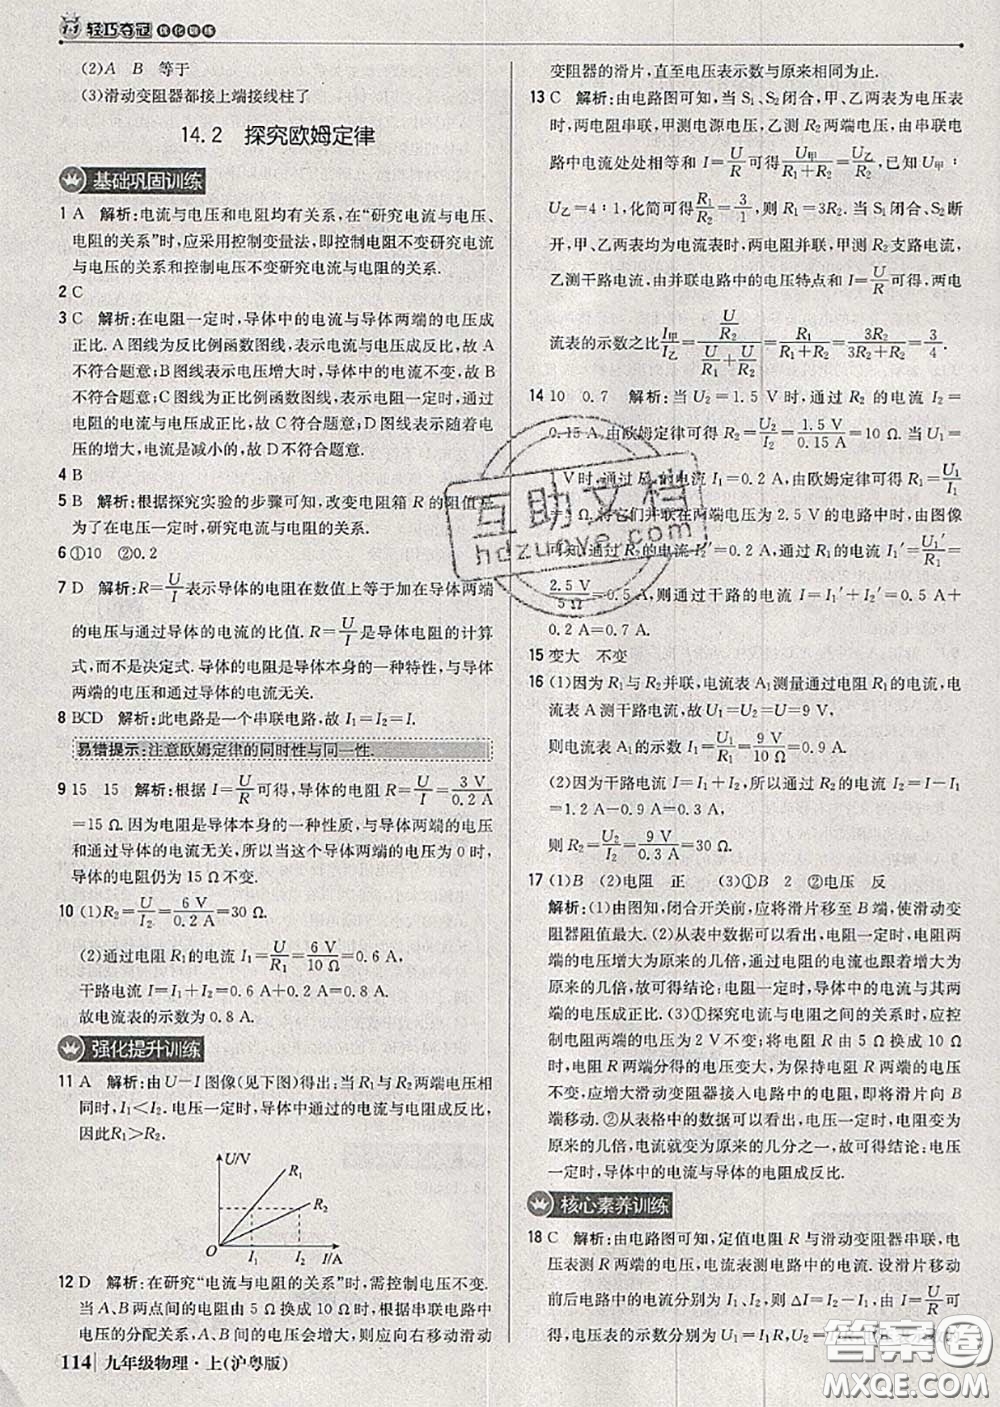 1+1 轻巧夺冠 优化训练
(2)A B 等于
(3)滑动变阻器都接上端接线柱了
14.2 探究欧姆定律
基础巩固训练
1 A 解析:电流与电压和电阻均有关系,在“研究电流与电压、
电阻的关系”时,应采用控制变量法,即控制电阻不变研究电流
与电压的关系和控制电压不变研究电流与电阻的关系.
2 C
3 C 解析:在电阻一定时,导体中的电流与导体两端的电压成
正比.A图线为反比例函数图线,表示电流与电压成反比,故A
不符合题意;B图线表示电压增大时,导体中的电流不变,故B
不符合题意;C图线为正比例函数图线,表示电阻一定时,通过
电阻的电流与电压成正比,故C符合题意;D图线表示随着电
压的增大,电流是减小的,故D不符合题意.
4 B
5 B 解析:根据探究实验的步骤可知,改变电阻箱R的阻值是
为了在电压一定时,研究电流与电阻的关系.
6 ①10 ②0.2
7 D 解析:R=U/I表示导体的电阻在数值上等于加在导体两端
的电压与通过导体的电流的比值.R=U/I是导体电阻的计算
式,而不是决定式.导体的电阻是导体本身的一种特性,与导体
两端的电压和通过导体的电流无关.
8 BCD 解析:此电路是一个串联电路,故I₁=I₂=I.
易错提示:注意欧姆定律的同时性与同一性.
9 15 15 解析:根据I=U/R可得,导体的电阻R=U/I=3 V/0.2 A
=15 Ω.因为电阻是导体本身的一种性质,与导体两端的电压
和通过导体的电流无关,所以当这个导体两端的电压为0时,
导体的电阻仍为15 Ω不变.
10 (1)R₂=U/I₂=6 V/0.2 A=30 Ω.
(2)通过电阻R₁的电流I₁=U/R₁=6 V/10 Ω=0.6 A,
干路电流I=I₁+I₂=0.6 A+0.2 A=0.8 A.
故电流表的示数为0.8 A.
强化提升训练
11 A 解析:由U-I图像(见下图)得出:当R₁与R₂两端电压相
同时,I₁<I₂.电压一定时,导体中通过的电流与电阻成反比,
因此R₁>R₂.
U/V
R₁
R₂
O I₁ I₂ I/A
12 D 解析:在研究“电流与电阻的关系”时,需控制电压不变.
当A、B两点间的电阻由5 Ω换成10 Ω时,根据串联电路中
电压的分配关系,A、B间的电压会增大,则应向右移动滑动
114 九年级物理·上(沪粤版)
变阻器的滑片,直至电压表示数与原来相同为止.
13 C 解析:由电路图可知,当S₁、S₂闭合,甲、乙两表为电压表
时,两电阻串联,甲测电源电压,乙测R₂两端电压,由串联电
路中电流处处相等和I=U/R可得U甲/(R₁+R₂)=U乙/R₂,已知U甲:
U乙=4:1,化简可得R₁/R₂=3/1,则R₁=3R₂.当S₁闭合、S₂断
开,甲、乙两表均为电流表时,两电阻并联,甲测R₂支路电流,
乙测干路电流,由并联电路中的电压特点和I=U/R可得,两电
流表的示数之比I甲/I乙=(U/R₂)/(U/R₁+U/R₂)=R₁/(R₁+R₂)=3R₂/(3R₂+R₂)=3/4.
14 10 0.7 解析:当U₂=1.5 V时,通过R₂的电流I₂=
0.15 A,由欧姆定律可得R₂=U₂/I₂=1.5 V/0.15 A=10 Ω.当U₁=
V时,通过R₁的电流I₁=0.2 A,由欧姆定律可得R₁=U₁/I₁
=5 Ω.将它们并联在两端电压为2.5 V的电路中时,由图像
可知,通过R₂的电流I₂′=0.2 A,通过R₁的电流I₁′=U₁′/R₁=
2.5 V/5 Ω=0.5 A,则通过干路的电流I=I₁′+I₂′=0.5 A+
0.2 A=0.7 A.
15 变大 不变
16 (1)因为R₁与R₂并联,电流表A₁测量通过电阻R₁的电流,电流
表A测干路电流,故U₁=U₂=U=9 V,
则电流表A₁的示数I₁=U₁/R₁=9 V/10 Ω=0.9 A.
(2)因为干路电流I=I₁+I₂,所以通过R₂的电流I₂=I-I₁
=1.2 A-0.9 A=0.3 A,
则R₂=U₂/I₂=9 V/0.3 A=30 Ω.
17 (1)B (2)电阻 正 (3)①B 2 ②电压 反
解析:(1)由图知,闭合开关前,应将滑片移至B端,使滑动变
阻器阻值最大.(2)从表中数据可以看出,电阻一定时,电阻两
端的电压增大为原来的几倍,通过电阻的电流也增大为原来
的几倍,故可得结论:电阻一定时,导体中的电流与其两端
的电压成正比.(3)①探究电流与电阻之间的关系时,应控制
电阻两端的电压为2 V不变;将电阻由5 Ω换成10 Ω
时,电阻R两端分得的电压变大,为了保持电阻两端的电压
不变,应增大滑动变阻器接入电路中的电阻,即将滑片向B
端移动.②从表格中的数据可以看出,电压一定时,电阻变为
原来的几倍,电流就变为原来的几分之一,故可得结论:电压
一定时,导体中的电流与电阻成反比.
核心素养训练
18 C 解析:由电路图可知,定值电阻R与滑动变阻器串联,电
压表测R两端的电压,电流表测电路中的电流.设滑片移动
前后电路中的电流分别为I₁、I₂,则ΔI=I₂-I₁,由I=U/R可
得,电压表的示数分别为U₁=I₁R,
互助文档
hdzuowen.com
答案圈
MXQE.COM